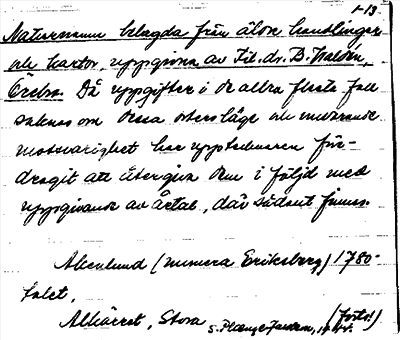 1-13
Naturnamn belagda från äldre handlingar
och kartor, uppgivna av Fil. dr. B. Waldén,
Örebro. Då uppgifter i de allra flesta fall
saknas om dessa orters läge och nuvarande
motsvarighet har upptecknaren före-
dragit att återgiva dem i följd med
uppgivande av årtal, där sådant finnes.
Akenlund (numera Eriksberg) 1780-
talet.
Alkärret, Stora
(Forts.)